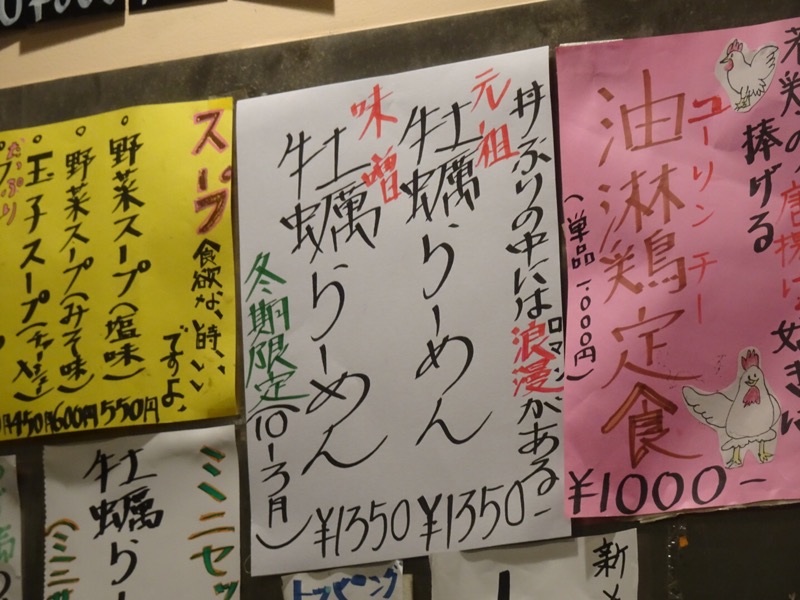 若鶏の唐揚げ好きに
捧げる
ユーリンチー
油淋鶏定食
(単品1000円)
¥1000-
丼ぶりの中には浪漫がある
ロマン
元祖
牡蠣らーめん
¥1350-
味噌
牡蠣らーめん
¥1350
冬期限定(10-3月)
スープ
食欲な、時、いい
ですよ、
・野菜スープ(塩味)
550円
・野菜スープ(みそ味)
600円
・玉子スープ(チャーシュー入)
450円
たっぷり
ミニセッ
牡蠣ら
(ミニ
トッピング
新